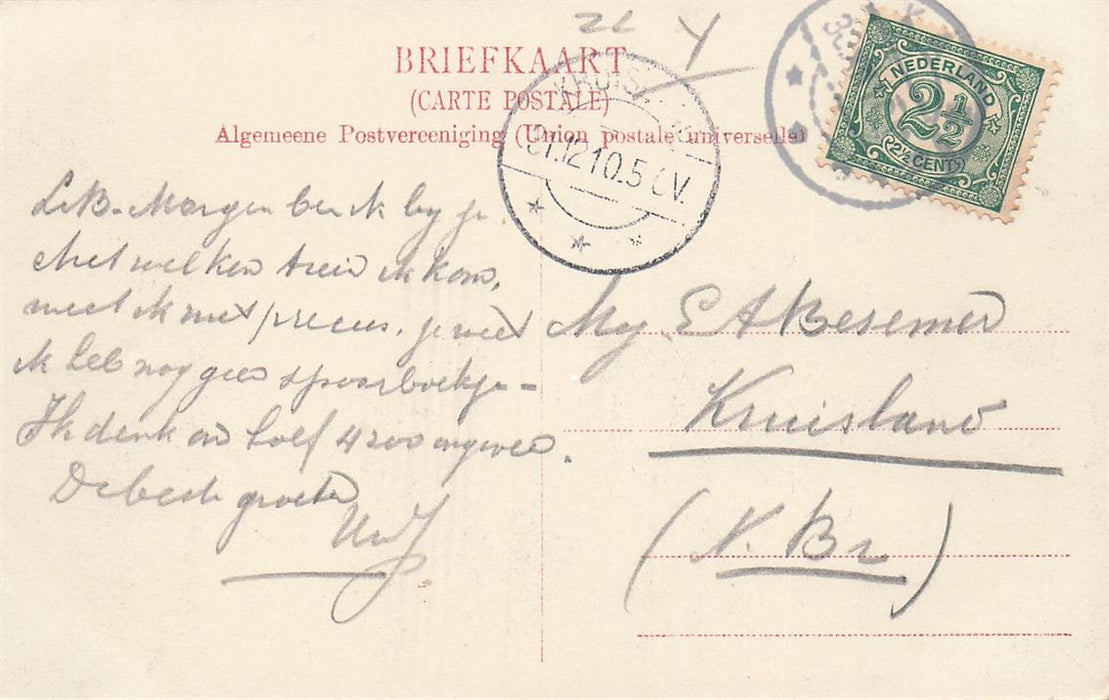 BRIEFKAART
(CARTE POSTALE)
Algemeene Postvereeniging (Union postale universelle)
NEDERLAND
2½
2½ CENT
KRUISLAND
12.10.5
L.B. Morgen ben ik by je.
Met welken trein ik kom,
weet ik niet precies. je weet
ik heb nog geen spoorboekje -
Ik denk om half 4 zoo ongeveer.
De beste groeten
Uw J
Mej. E A Besemer
Kruisland
(N. Br)